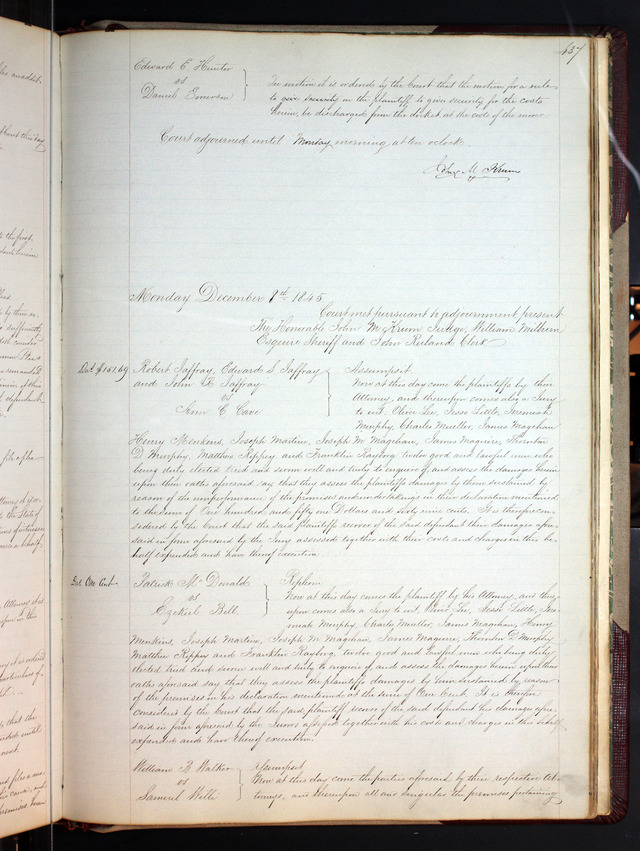 437
Edward E Hunter
vs
Daniel
On motion it is ordered by the Court that the motion for a rule
to give security on the plaintiff to give security for the costs
herein, be discharged from the docket at the cost of the mover
Court adjourned until Monday morning at ten oclock
John M Krum
Monday December 8th 1845
Court met pursuant to adjournment, present
The Honorable John M Krum Judge, William Milburn
Esquire Sheriff and John Ruland Clerk
Dat $151.69
Robert Jaffray, Edward S Jaffray
and John R Jaffray
vs
C Cave
Assumpsit
Now at this day come the plaintiffs by their
Attorney, and thereupon comes also a Jury
to wit, Oliver Lee, Jesse Little, Jeremiah
Murphy, Charles Mueller, James Magehan
Henry Menkins, Joseph Martine, Joseph M Magehan, James Maguire, Thornton
D Murphy, Matthew Rippey and Franklin Rayborg, twelve good and lawful men who
being duly elected tried and sworn well and truly to enquire of, and assess the damages herein
upon their oaths aforesaid say that they assess the plaintiffs damages by them sustained by
reason of the nonperformance of the promises and undertakings in the declaration mentioned
to the sum of One hundred and fifty one Dollars and sixty nine cents. It is therefore con-
sidered by the Court that the said plaintiffs recover of the said defendant their damages afore-
said in form aforesaid by the Jury assessed together with their costs and charges in this be-
half expended and have thereof execution
Dat. One Cent
Patrick McDonald
vs
Ezekiel Bell
Now at this day comes the plaintiff by his Attorney, and there-
upon comes also a Jury to wit, Lee, Jesse Little, Jere-
miah Murphy, Charles Mueller, James Magehan, Henry
Menkins, Joseph Martine, Joseph M Magehan, James Maguire, Thornton D Murphy
Matthew Rippey and Franklin Rayborg, twelve good and lawful men who being duly
elected tried and sworn well and truly to enquire of and assess the damages herein upon their
oaths aforesaid say that they assess the plaintiffs damages by him sustained by reason
of the premises in his declaration mentioned at the sum of One Cent. It is therefore
considered by the Court that the said plaintiff recover of the said defendant his damages afore-
said in form aforesaid by the Jurors assessed together with his costs and charges in this behalf
expended and have thereof execution.
William B Walker
vs
Samuel
Assumpsit
Now at this day come the parties aforesaid by their respective At-
torneys, and thereupon all and singular the premises pertaining